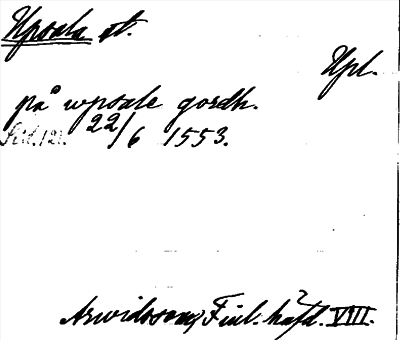 Upsala st.
Upl.
på wpsale gordh.
22/6 1553.
Arwidsson, Finl. häfd. VIII.